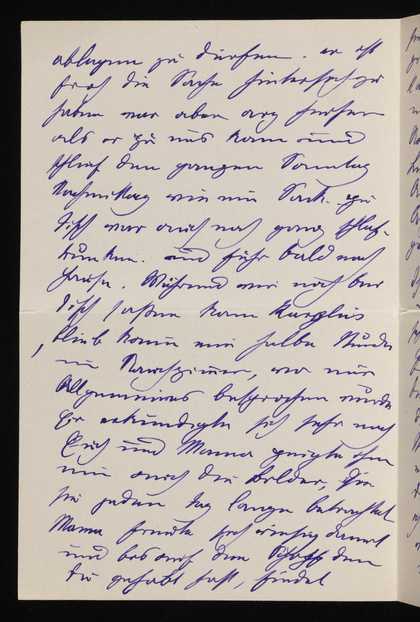 ablegen zu dürfen. er ist
froh die Sache hinter sich zu
haben war aber arg
als er zu uns kam und
schlief den ganzen Sonntag
Nachmittag wie ein Sack. zu
Tisch war auch noch ganz schlaf-
trunken. und fuhr bald nach
Hause. Während wir noch bei
Tisch saßen kam Karplus
, blieb kaum eine halbe Stunde
im Rauchzimmer, wo nur
Allgemeines besprochen wurde
Er erkundigte sich sehr nach
Euch und Mama zeigte ihm
nun auch die Bilder, die
sie jeden Tag lange betrachtet
Mama freute sich riesig damit
und bis auf den den
Du gehabt hast, findet